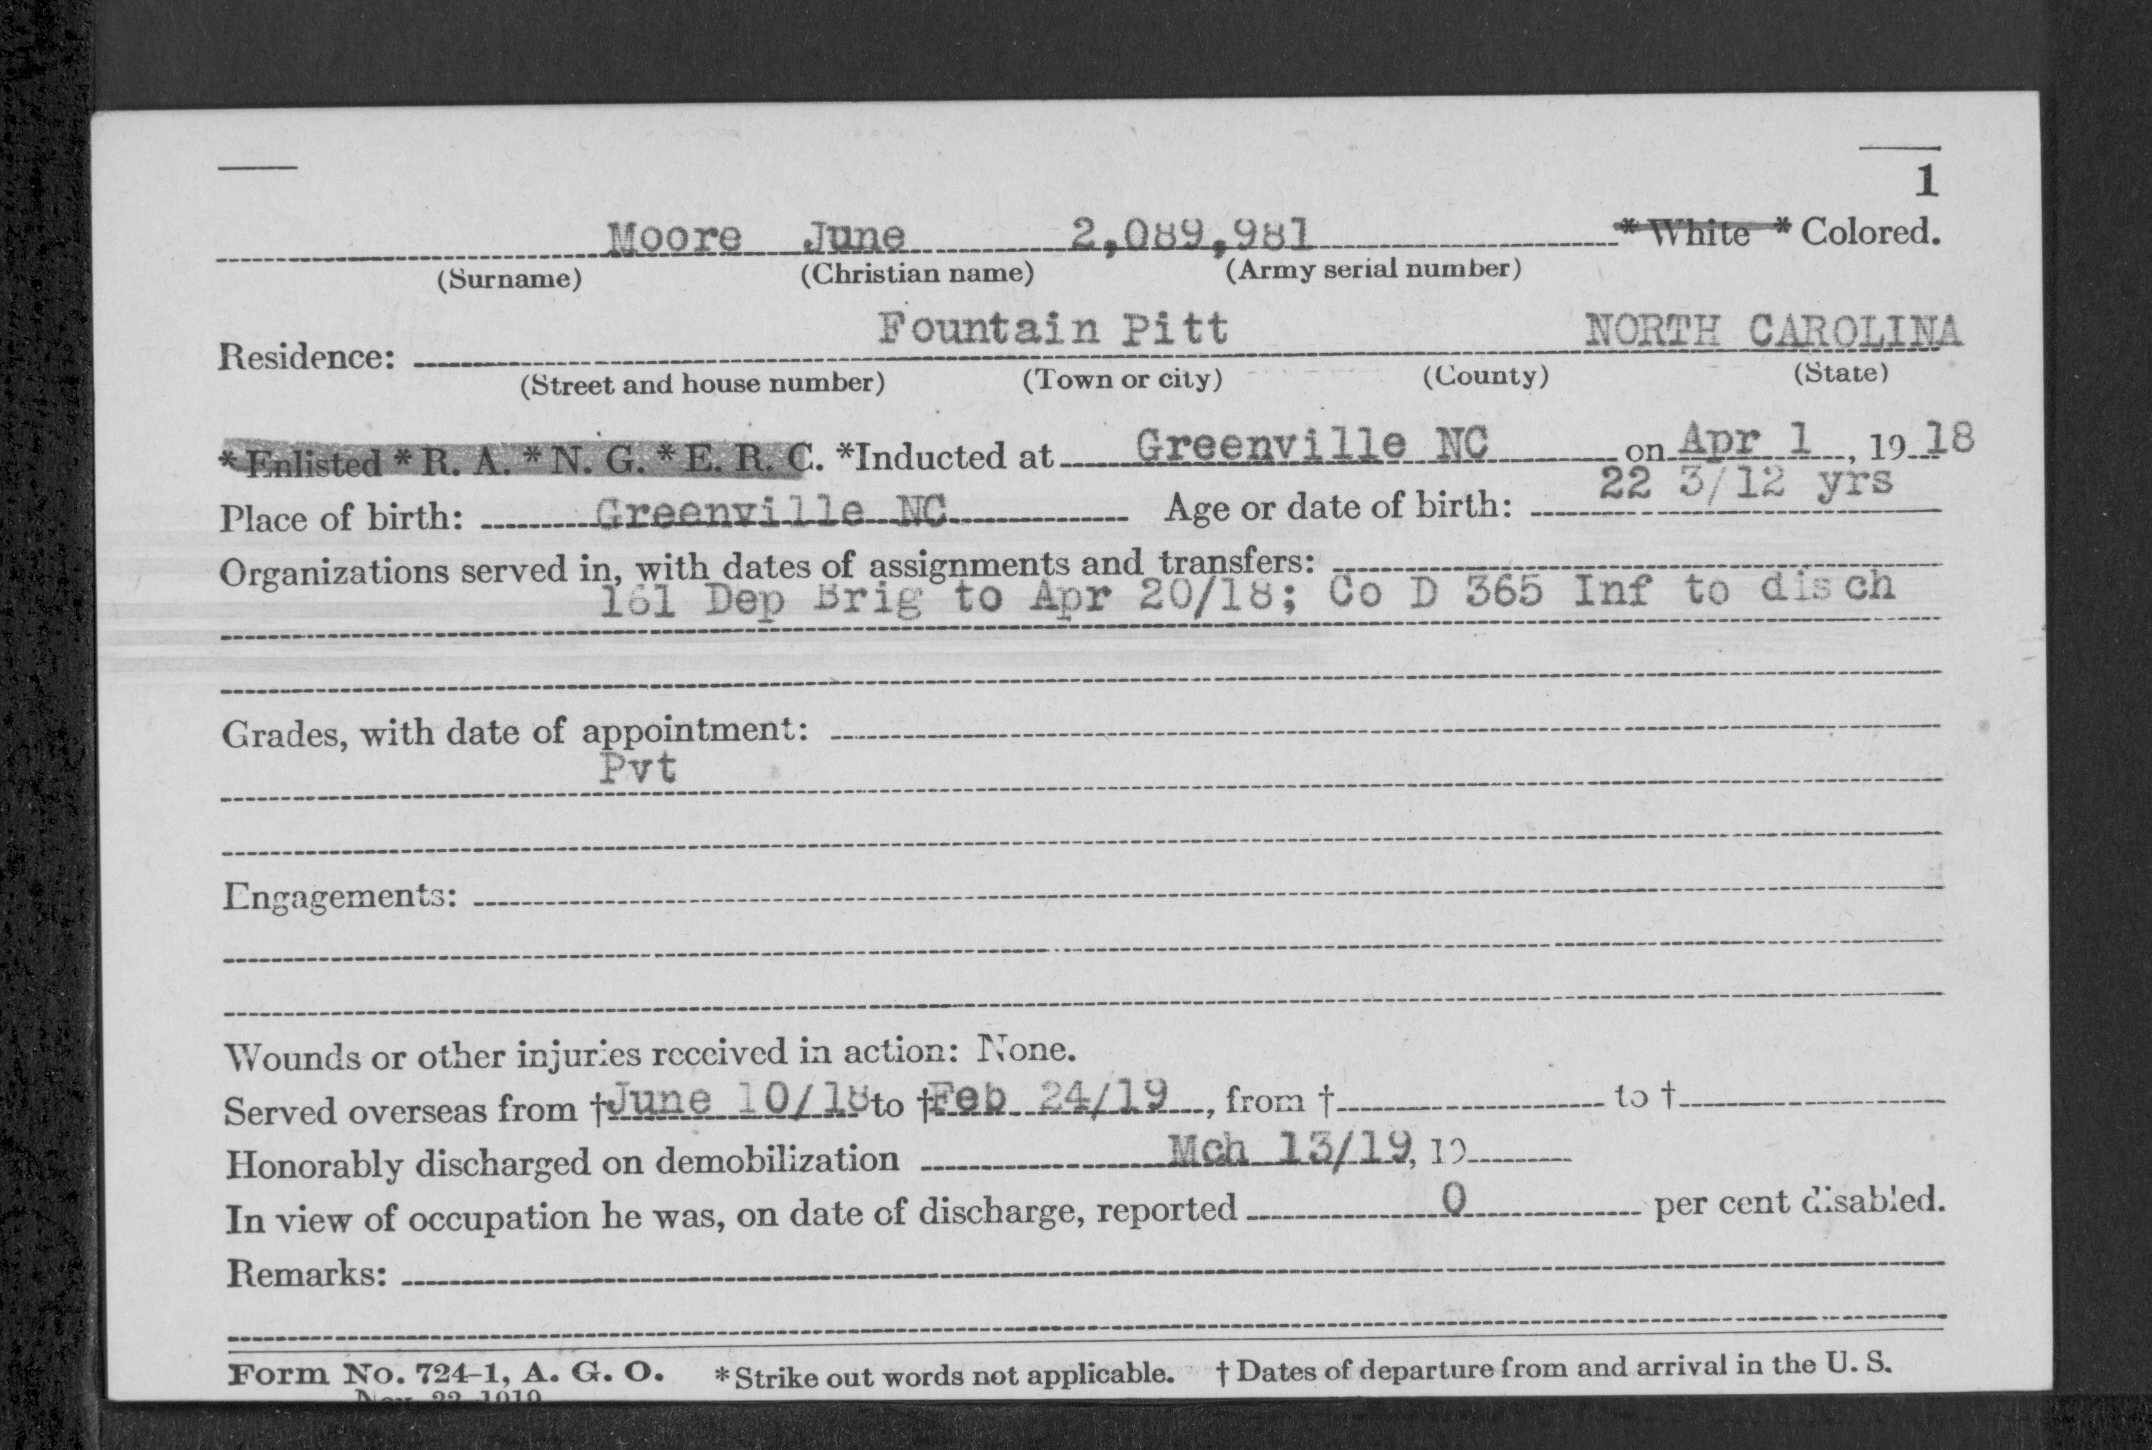 1
Moore June 2,089,981 * White * Colored.
(Surname) (Christian name) (Army serial number)
Fountain Pitt NORTH CAROLINA
Residence:
(Street and house number) (Town or city) (County) (State)
* Enlisted * R. A. * N. G. * E. R. C. *Inducted at Greenville NC on Apr 1, 19 18
Place of birth: Greenville NC Age or date of birth: 22 3/12 yrs
Organizations served in, with dates of assignments and transfers:
161 Dep Brig to Apr 20/18; Co D 365 Inf to disch
Grades, with date of appointment:
Pvt
Engagements:
Wounds or other injuries received in action: None.
Served overseas from † June 10/18 to † Feb 24/19, from † to †
Honorably discharged on demobilization Mch 13/19, 19
In view of occupation he was, on date of discharge, reported 0 per cent disabled.
Remarks:
Form No. 724-1, A. G. O. * Strike out words not applicable. † Dates of departure from and arrival in the U. S.
Nov. 22, 1919